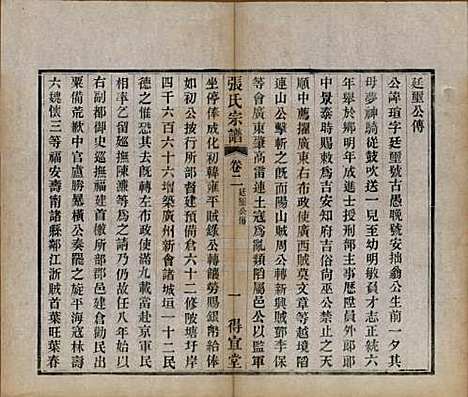 廷璽公傳
公諱瑄字廷璽號古愚晚號安拙翁公生前一夕其
母夢神騎從鼓吹送一兒至幼明敏負才志正統六
年舉於鄉明年成進士授刑部主事歷陞員外郎
中景泰時賜敕為吉安知府有惠政
順中薦擢廣東右布政使廣西賊莫文章等越境陷
連山公擊斬之而陽山賊周公轉新興賊鄧李保
等會廣東肇高雷連土寇為亂類陷屬邑公以監軍
張氏宗譜
卷二
廷璽公傳
一
得宜堂
坐停俸威化初韓雍平賊錄公轉饋勞賜銀幣給俸
如初公按行所部督建預備倉六十二修陂塘圩岸
四千六百六十六增築廣州新會諸城垣一十二民
德之惟恐其去既轉左布政使滿九載當赴京軍民
相率乞留巡撫陳濂等為之請乃仍故任八年始以
右副都御史巡撫福建首檄所部郡邑建倉勸民出
粟備荒歉中官盧勝暴橫公奏罷之旋平海寇林壽
六魏懷三等福安壽甯諸縣鄰江浙賊首葉旺葉春